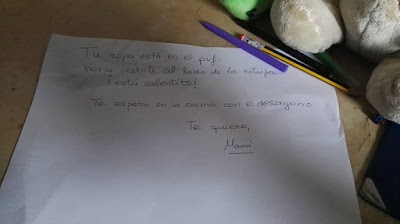 Tu ropa está en el puf.
Ven a vestirte al lado de la estufa
¡Está calentito!
Te espero en la cocina con el desayuno
Te quiere,
Mami